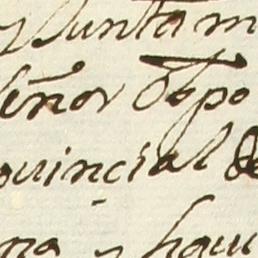 Juntam
eñor Obpo
ouincial de
na y hqui